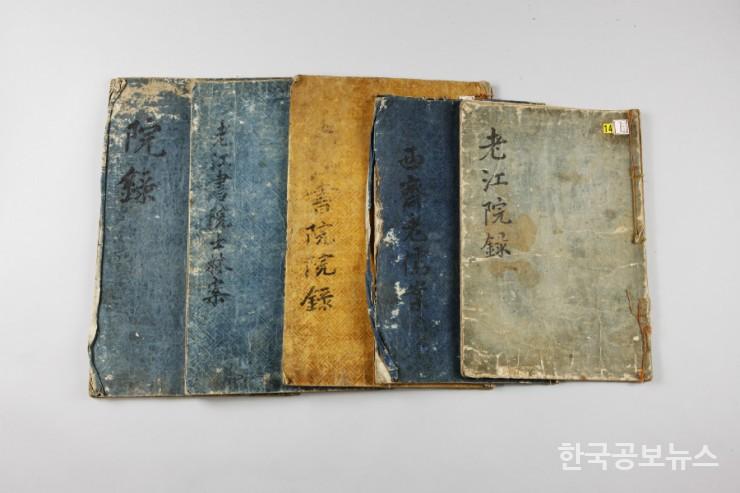 院錄
老江書院士林案
書院院錄
西齋老儒案
老江院録
14
한국공보뉴스